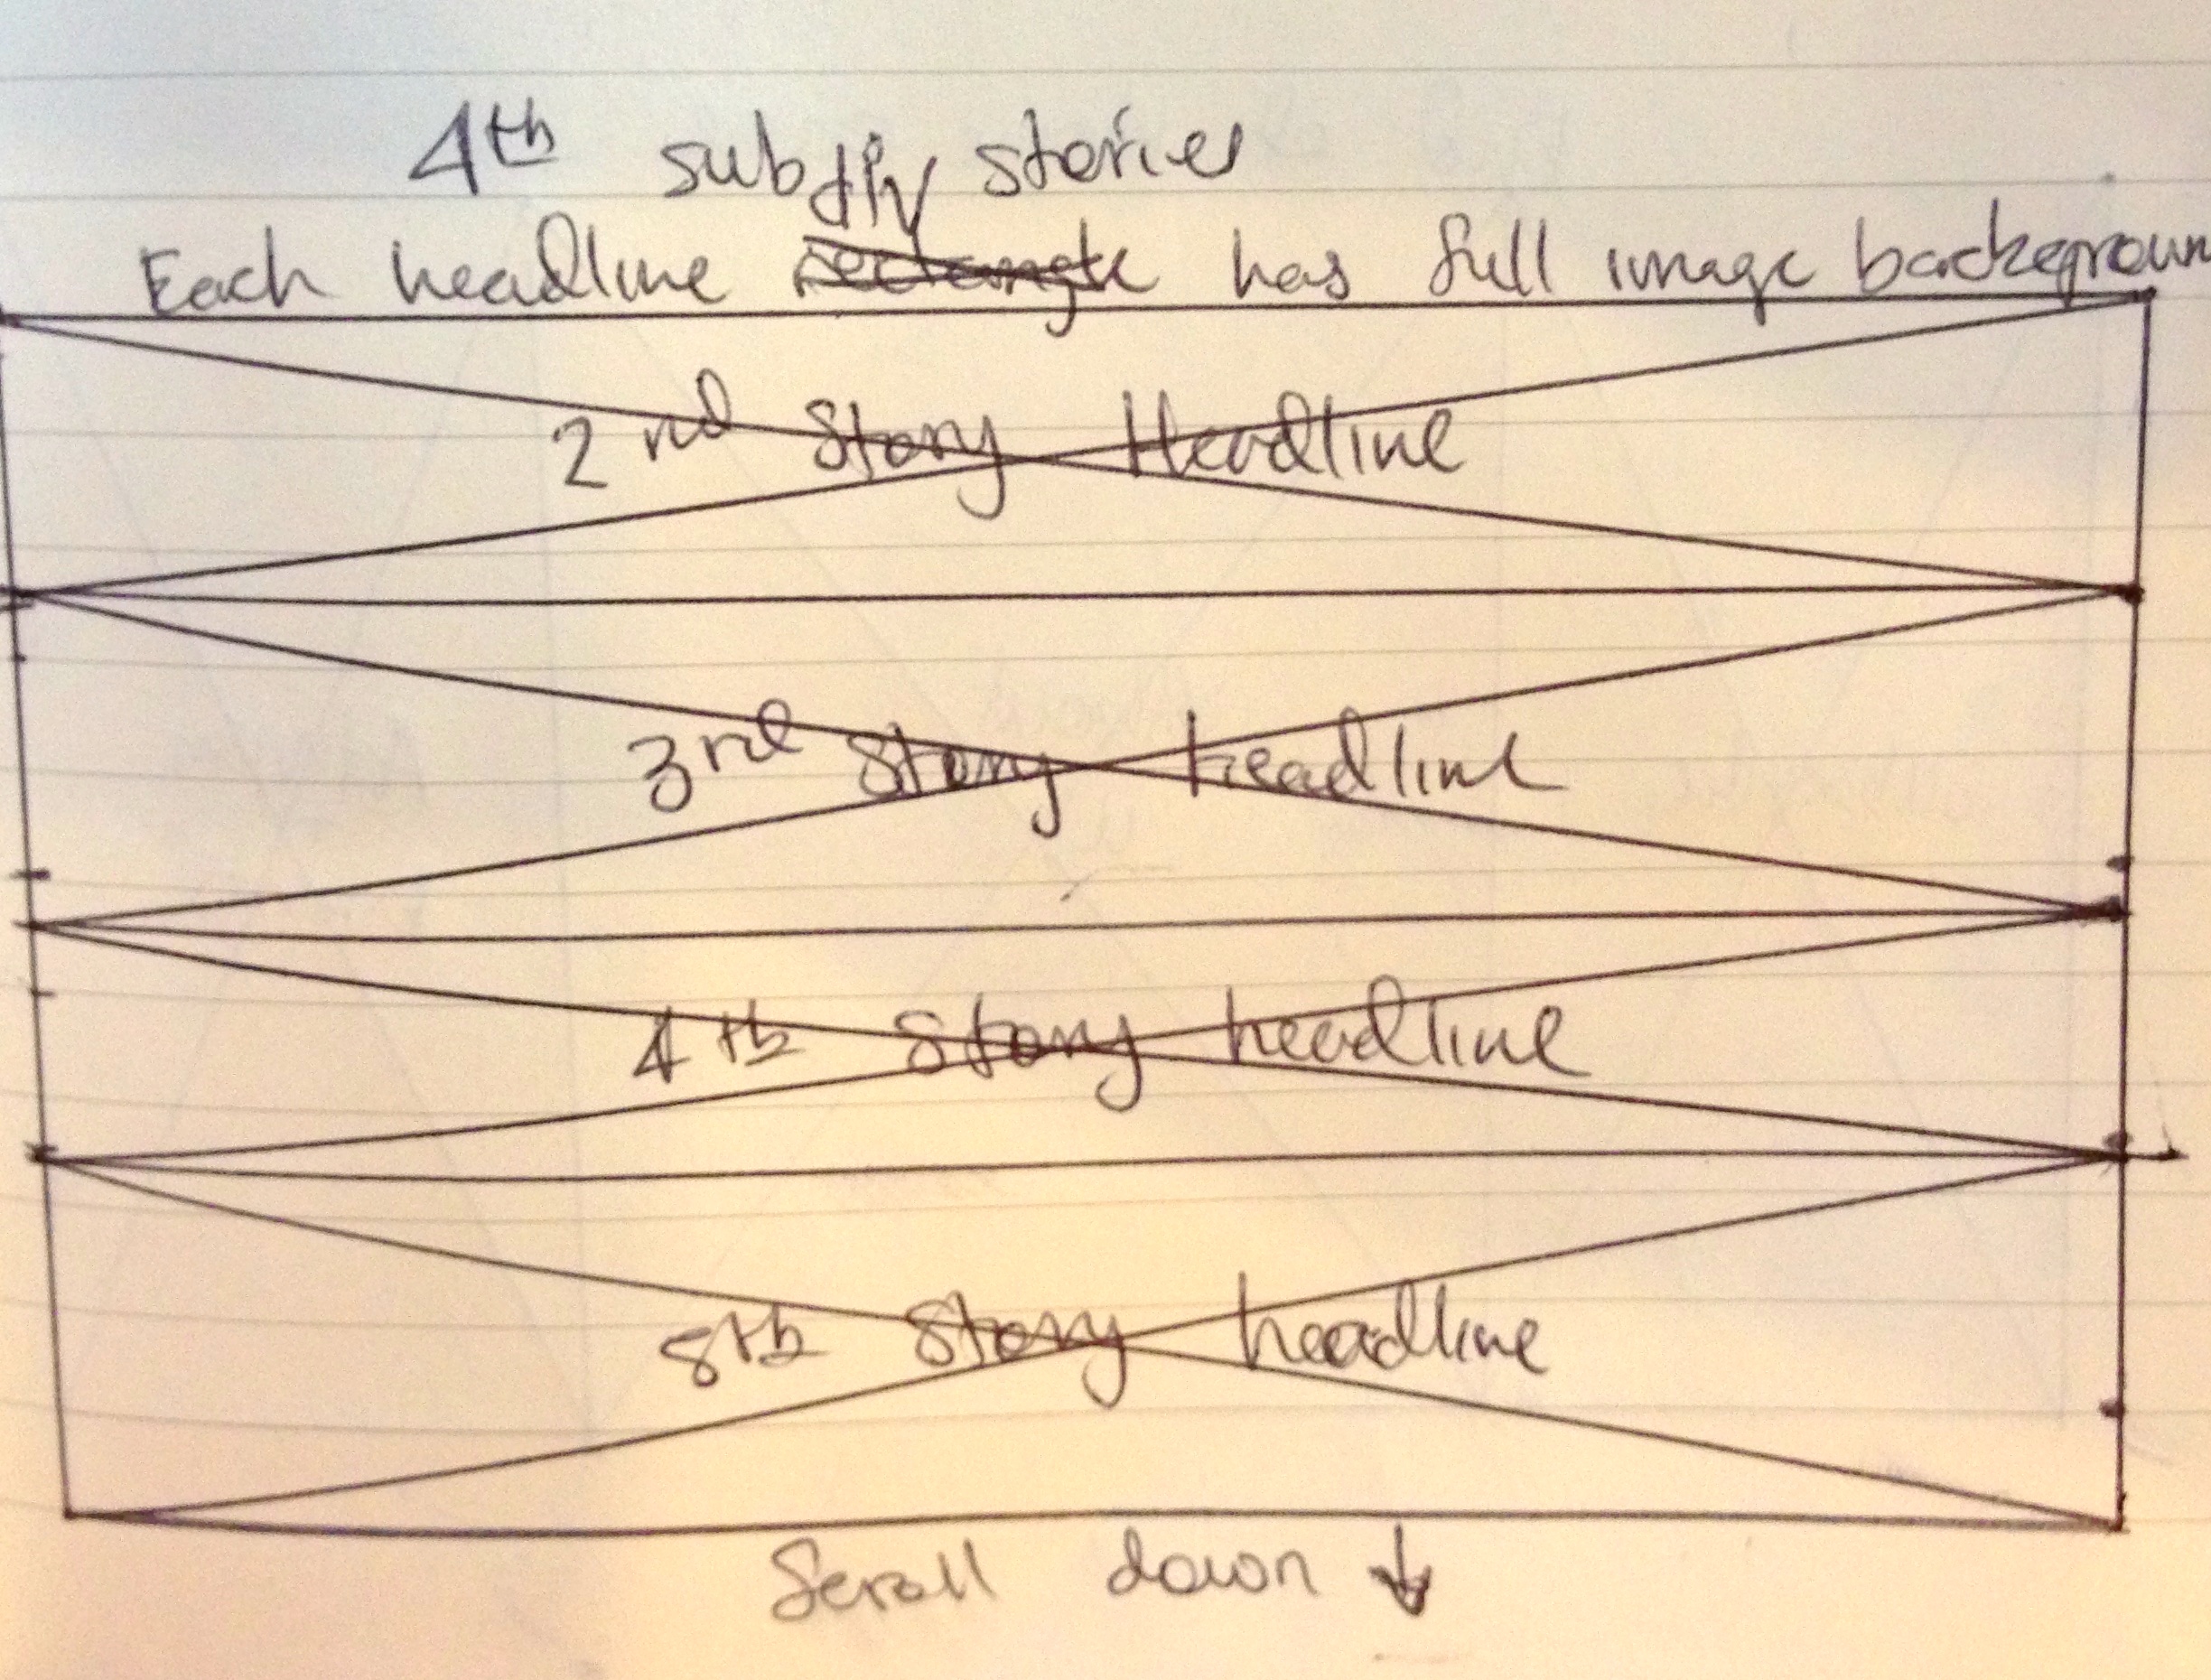 4th sub stories
div
Each headline has full image backgroun
2nd Story Headline
3rd Story headline
4th Story headline
8th Story headline
Scroll down ↓